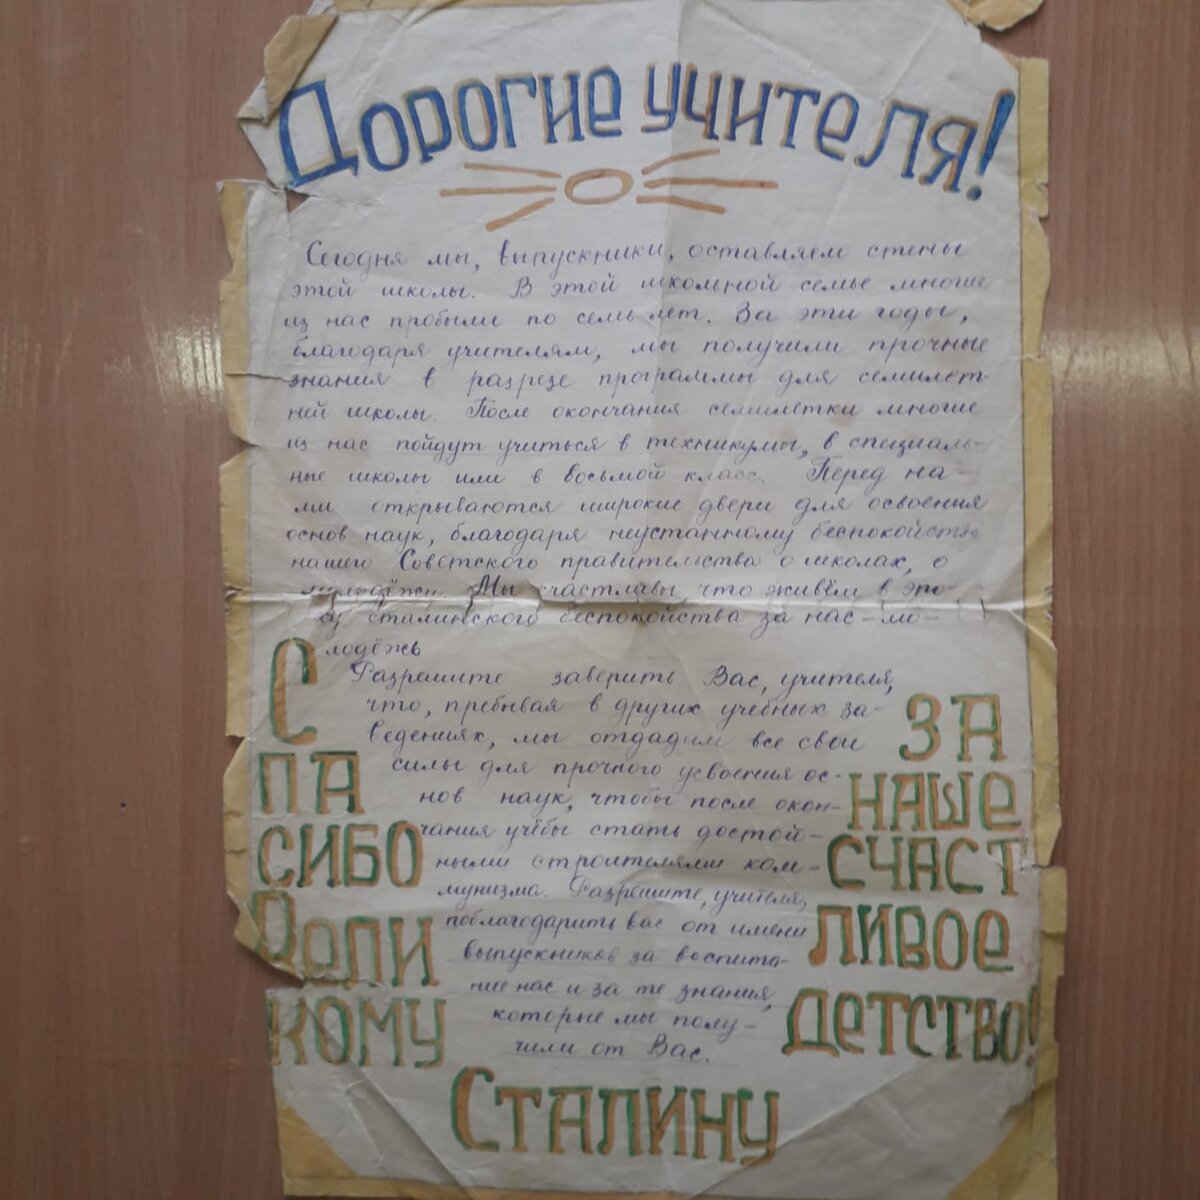 Дорогие учителя!
Сегодня мы, выпускники, оставляем стены
этой школы. В этой школьной семье многие
из нас пробыли по семь лет. За эти годы,
благодаря учителям, мы получили прочные
знания в разрезе программы для семилет-
ней школы. После окончания семилетки многие
из нас пойдут учиться в техникумы, в специаль-
ные школы или в восьмой класс. Перед на-
ми открываются широкие двери для освоения
основ наук, благодаря неустанному беспокойству
нашего Советского правительства о школах, о
молодёжи. Мы счастливы, что живём в эпо-
ху сталинского беспокойства за нас-мо-
лодёжь
Разрешите заверить Вас, учителя,
что, пребывая в других учебных за-
ведениях, мы отдадим все свои
силы для прочного усвоения ос-
нов наук, чтобы после окон-
чания учёбы стать достой-
ными строителями ком-
мунизма. Разрешите, учителя,
поблагодарить вас от имени
выпускников за воспита-
ние нас и за те знания,
которые мы полу-
чили от Вас.
С
ПА
СИБО
Вели
КОМУ
Сталину
ЗА
НАШе
СЧАСТ
ЛИВОе
Детство!